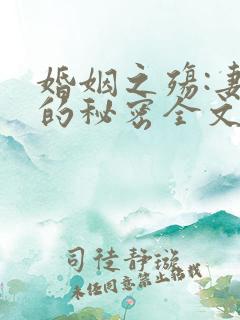 婚姻之殇:妻
的秘密全文
司徒静璇
未经同意禁止转载